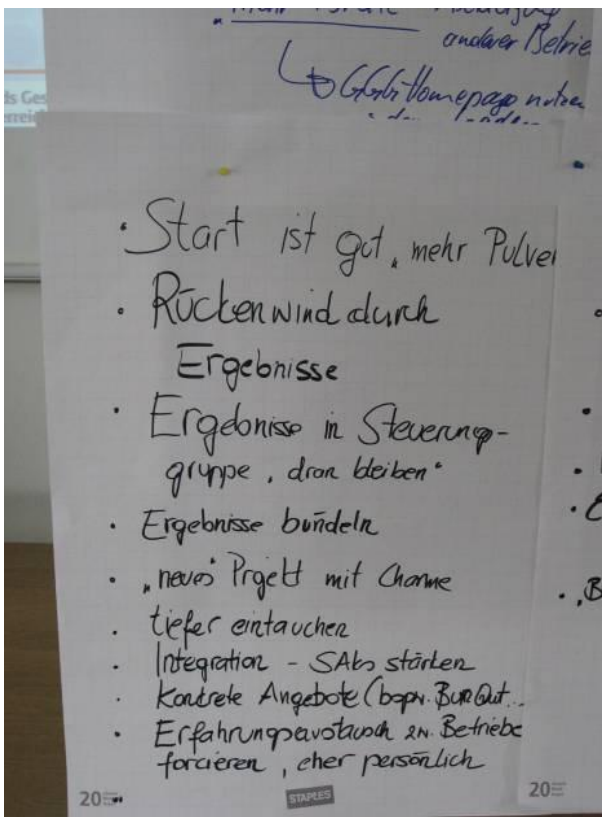 anderer Betrie
GGB Homepage nutzen
ds Ges
erreic
• Start ist gut „ mehr Pulver
• Rückenwind durch
Ergebnisse
• Ergebnisse in Steuerungs-
gruppe „dran bleiben“
• Ergebnisse bündeln
• „neues“ Projekt mit Charme
• tiefer eintauchen
• Integration - SAks stärken
• Konkrete Angebote (bspw. BurnOut...
• Erfahrungsaustausch zw. Betriebe
forcieren, eher persönlich
20
STAPLES
20